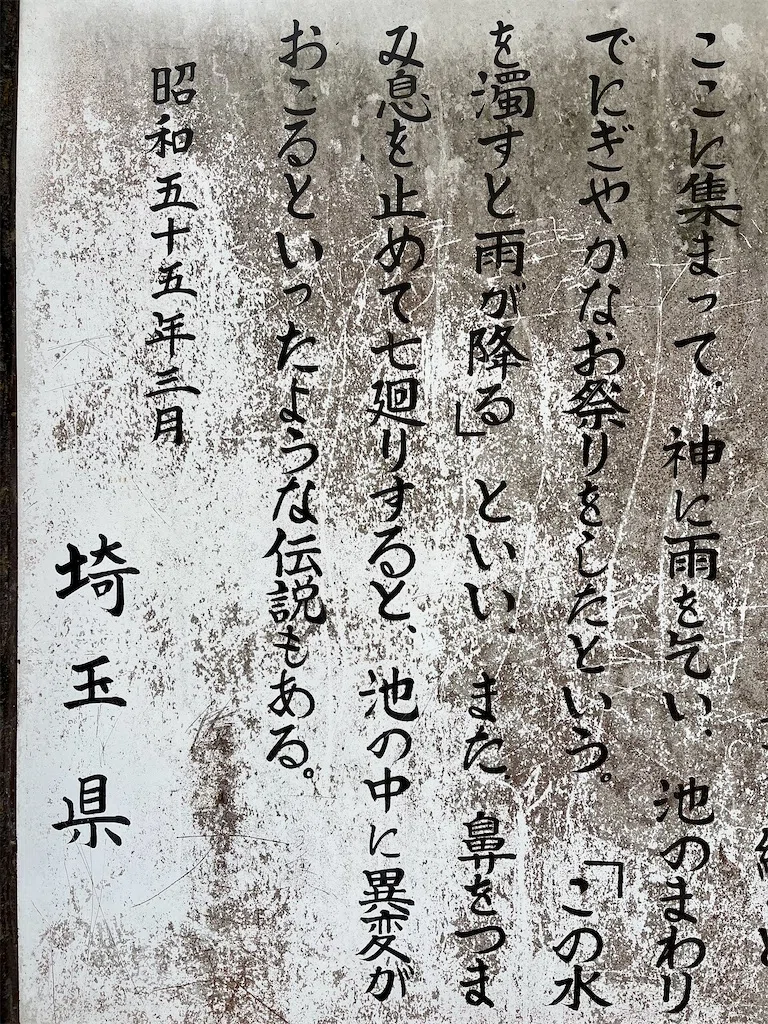 ここに集まって、神に雨を乞い、池のまわり
でにぎやかなお祭りをしたという。「この水
を濁すと雨が降る」といい、また、鼻をつま
み息を止めて七廻りすると、池の中に異変が
おこるといったような伝説もある。
昭和五十五年三月
埼玉県